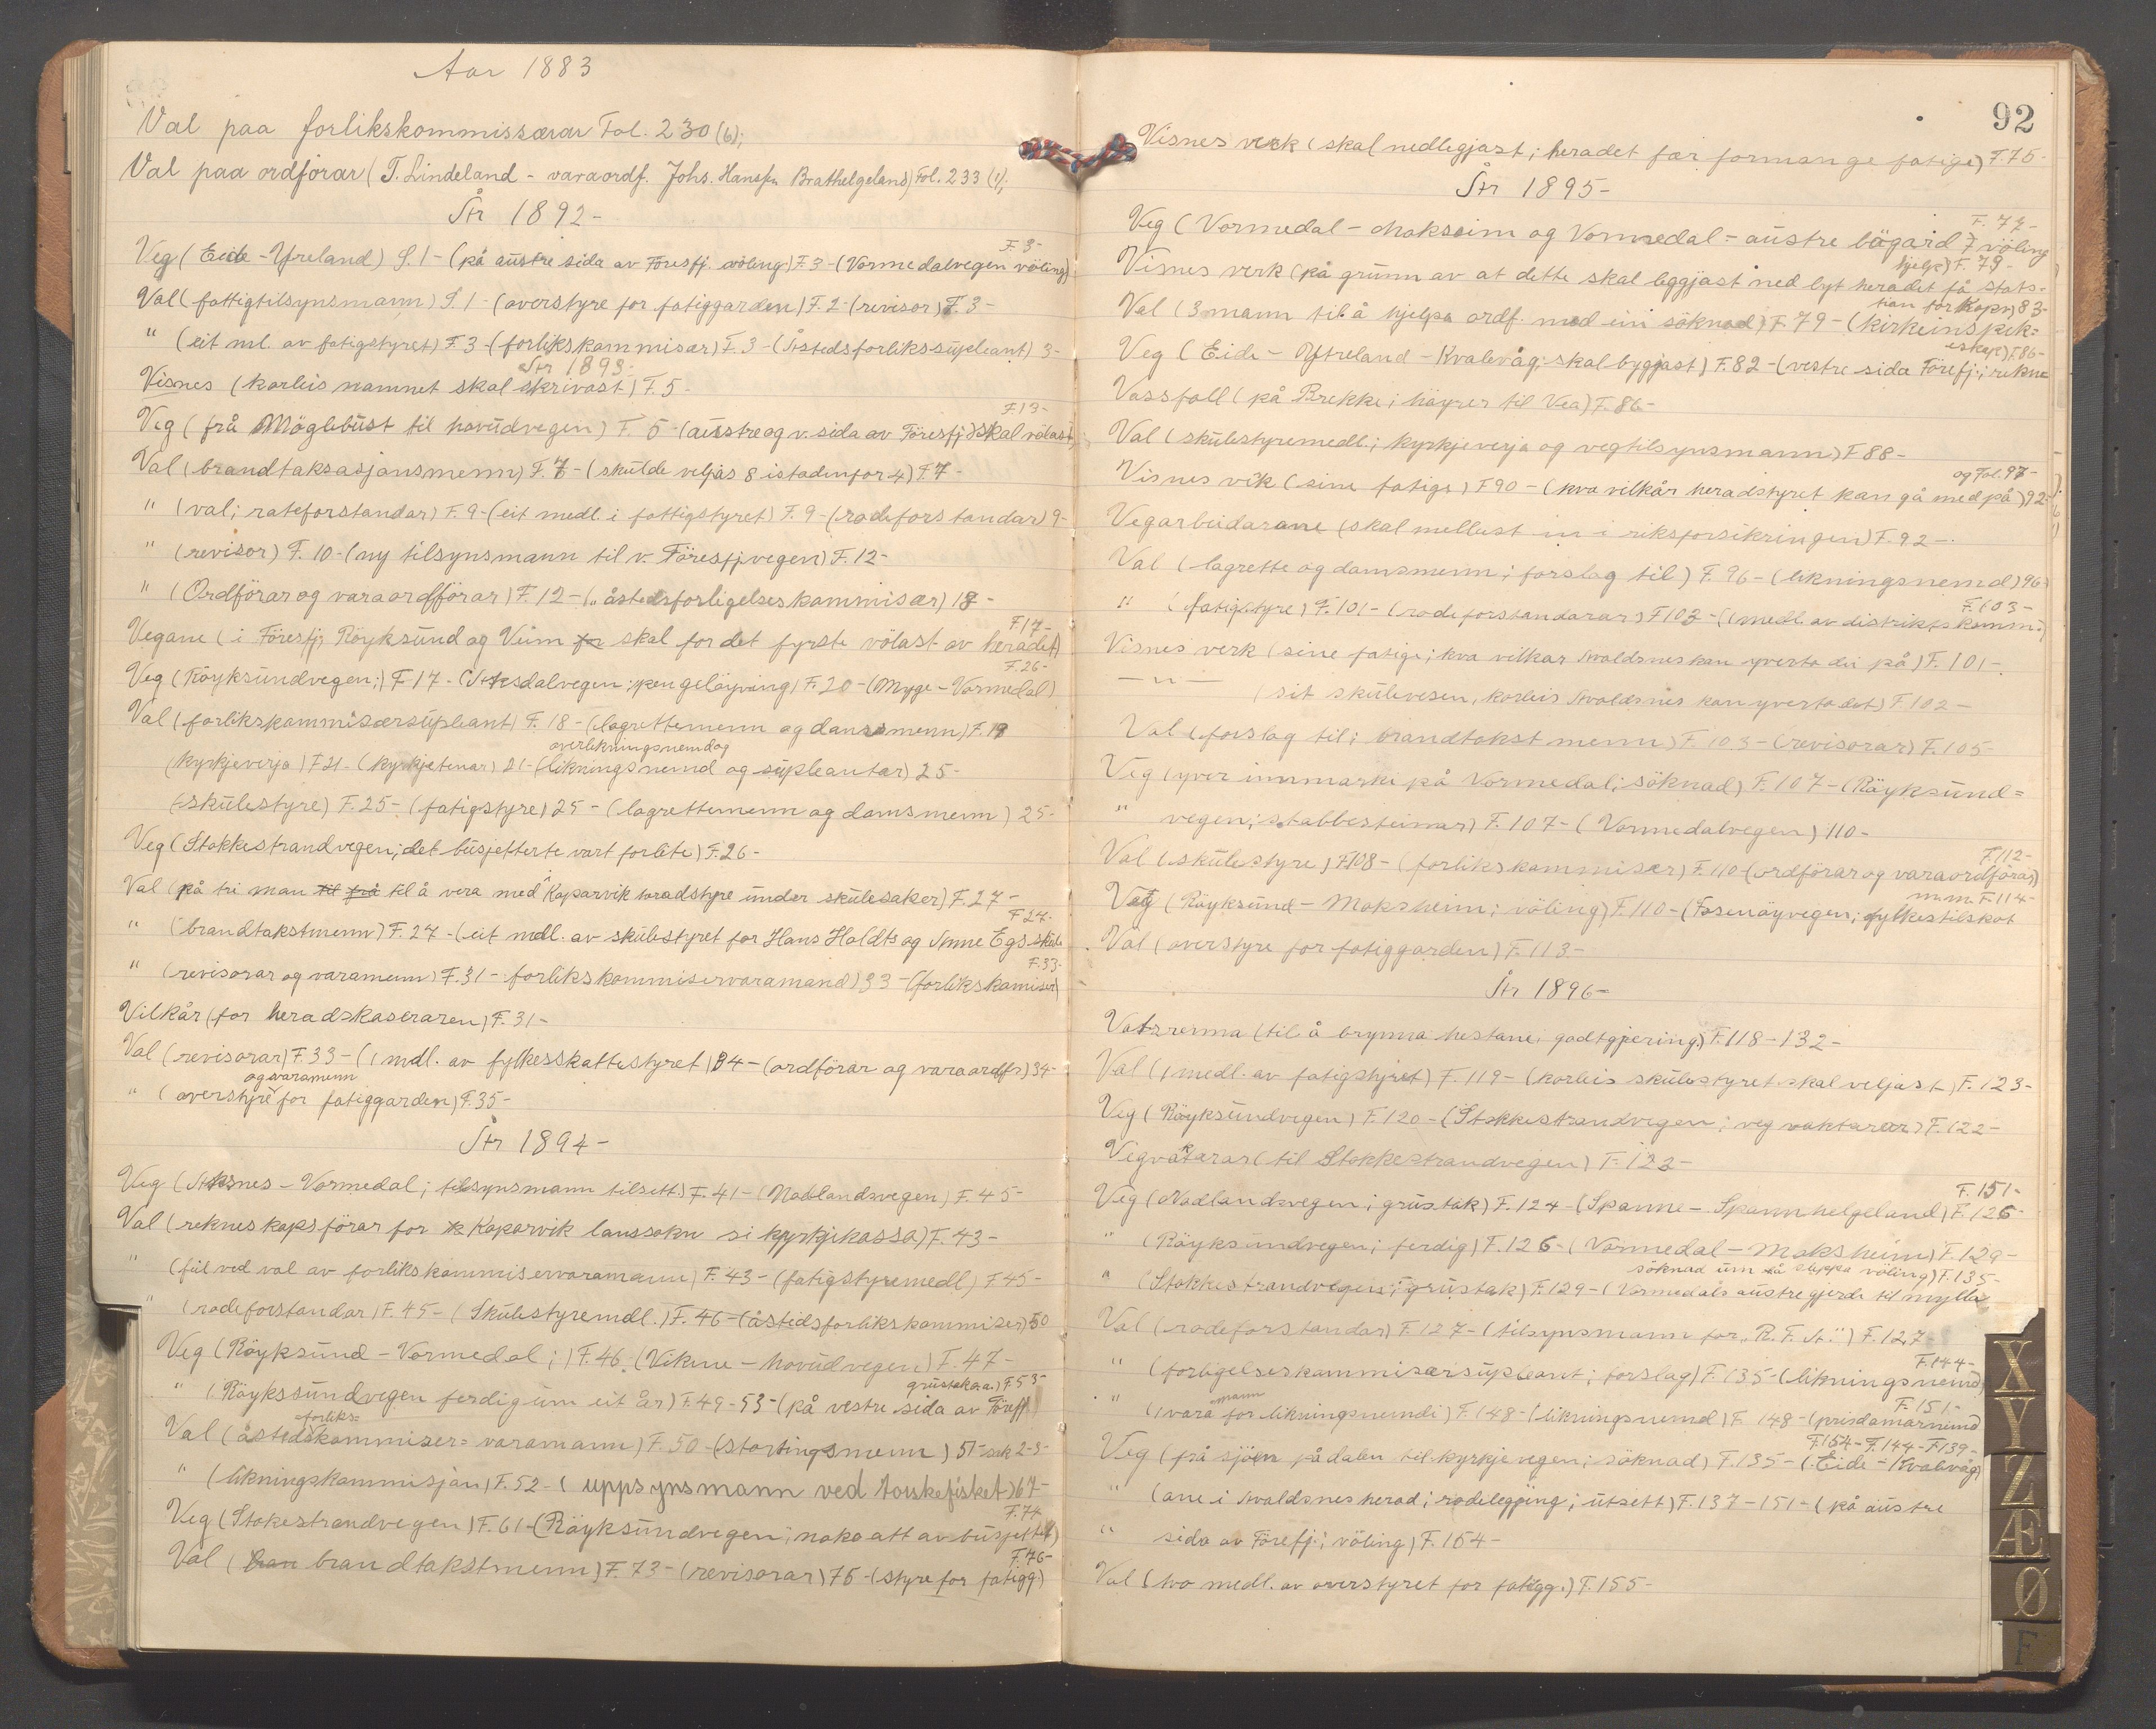 Aar 1883
Val paa forlikskommissærar Fol. 230 (6);
Val paa ordförar (T. Lindeland - varaordf. Johs. Hansen Brathelgeland) Fol. 233 (1),
År 1892-
F. 3-
Veg (Eide - Ytreland) S. 1 - (på austre sida av Föresfj. völing) F. 3 - (Vormedalvegen völing)
Val (fattigtilsynsmann) S. 1 - (overstyre for fatiggarden) F. 2 - (revisor) F. 3 -
" (eit ml. av fatigstyret) F. 3 - (forlikskommisær) F. 3 - (Åstedsforlikssupleant) 3 -
År 1893-
Visnes (korleis namnet skal skrivast) F. 5 -
F. 13-
Veg (frå Möglebust til hovudvegen) F. 5 - (austre og v. sida av Föresfj) skal völast)
Val (brandtaksasjonsmenn) F. 7 - (skulde veljas 8 istadenfor 4) F. 7 -
" (val; rateforstandar) F. 9 - (eit medl. i fattigstyret) F. 9 - (rodeforstandar) 9 -
" (revisor) F. 10 - (ny tilsynsmann til v. Föresfjvegen) F. 12 -
" (Ordförar og varaordförar) F. 12 - (" åstedsforligelseskommisær) 18 -
F 17-
Vegane (i Föresfj, Röyksund og Veim for skal for det fyrste völast av heradet)
F. 26-
Veg (Röyksundvegen;) F 17 - (Aksdalvegen; pengelöyving) F. 20 - (Myge - Vormedal)
Val (forlikskommisærsupleant) F. 18 - (lagrettemenn og domsmenn) F. 19
overlikningsnemd og
(kyrkjeverja) F 21 - (kyrkjetenar) 21 - (likningsnemd og supleantar) 25 -
(skulestyre) F. 25 - (fatigstyre) 25 - (lagrettemenn og domsmenn) 25 -
Veg (Stokkestrandvegen; det busjetterte vart forlite) F. 26 -
Val (på tri man til frå til å vera med i Koparvik heradstyre under skulesaker) F. 27 -
F 27-
" (brandtakstmenn) F. 27 - (eit medl. av skulestyret for Hans Holdts og Anne Egs skule
F. 33-
" (revisorar og varamenn) F. 31 - forlikskommiservaramand) 33 - (forlikskomiser)
Vilkår (for heradskaseraren) F. 31 -
Val (revisorar) F. 33 - (1 medl. av fylkesskattestyret) 34 - (ordförar og varaordf.) 34 -
og varamenn
" (overstyre for fatiggarden) F. 35 -
År 1894-
Veg (Aksnes - Vormedal; tilsynsmann tilsett) F. 41 - (Nodlandsvegen) F. 45 -
Val (rekneskapsförar for Koparvik laussokn si kyrkjekassa) F. 43 -
" (feil ved val av forlikskommiservaramann) F. 43 - (fatigstyremedl) F. 45 -
" (rodeforstandar) F. 45 - (Skulestyremdl.) F. 46 - (åstedsforlikskommiser) 50
Veg (Röyksund - Vormedal;) F. 46. (Vikene - hovudvegen) F. 47 -
grustak a.a.) F. 53-
" (Röykssundvegen ferdig um eit år) F. 49 - 53 - (på vestre sida av Föresfj
forliks-
Val (åstedskommiser= varamann) F. 50 - (stortingsmenn) 51 - sak 2-3-
" (likningskommisjon) F. 52 - (uppsynsmann ved torskefisket) 67 -
F. 74
Veg (Stokestrandvegen) F. 61 - (Röyksundvegen; noko att av busjettet)
F. 76-
Val (bran brandtakstmenn) F. 73 - (revisorar) 75 - (styre for fatigg.)
92
Visnes verk (skal nedlegjast; heradet fær formange fatige) F. 75 -
År 1895-
F. 77-
Veg (Vormedal - Moksheim og Vormedal = austre bögard) völing
hjelp) F. 79-
Visnes verk (på grunn av at dette skal leggjast ned lyt heradet få stats-
tian for Kopv) 83-
Val (3 mann til å hjelpa ordf. med ein söknad) F. 79 - (kirkeinspek=
eskap) F. 86-
Veg (Eide - Ytreland - Kvalevåg; skal bygjast) F. 82 - (vestre sida Föresfj.; rekne
Vassfall (på Brekke; höyrer til Vea) F. 86 -
Val (skulestyremedl.; kyrkjeverja og vegtilsynsmann) F 88 -
og Fol. 97-
Visnes vik (sine fatige) F 90 - (kva vilkår heradstyret kan gå med på) 92-
Vegarbeidarane (skal mellast inn i riksforsikringen) F. 92 -
Val (lagrette og domsmenn; forslag til) F. 96 - (likningsnemd) 96)
F. 103-
" (fatigstyre) F. 101 - (rodeforstandarar) F 103 - (1 medl. av distriktskomm.)
Visnes verk (sine fatige; kva vilkar Avaldsnes kan yverta dei på) F. 101 -
— " — (sit skulevesen, korleis Avaldsnes kan yverta det) F. 102 -
Val (forslag til; brandtakst menn) F. 103 - (revisorar) F. 105 -
Veg (yver innmarki på Vormedal; söknad) F. 107 - (Röyksund=
" vegen; stabbesteinar) F. 107 - (Vormedalvegen) 110 -
F 112-
Val (skulestyre) F 108 - (forlikskommiser) F. 110 - (ordförar og varaordförar)
m.m. F 114-
Veg (Röyksund - Moksheim; völing) F. 110 - (Fosenöyvegen; fylkestilskot
Val (overstyre for fatiggarden) F. 113 -
År 1896-
Vatsrenna (til å brynna hestane, godtgjering) F. 118 - 132 -
Val (1 medl. av fatigstyret) F. 119 - (korleis skulestyret skal veljast) F. 123 -
Veg (Röyksundvegen) F. 120 - (Stokkestrandvegen; veg vaktarar) F. 122 -
Vegvaktarar (til Stokkestrandvegen) F. 122 -
F. 151-
Veg (Nodlandsvegen; grustak) F. 124 - (Spanne - Spannhelgeland) F. 126
" (Röyksundvegen; ferdig) F. 126 - (Vormedal - Moksheim) F. 129 -
söknad um å sleppa völing) F. 135-
" (Stokkestrandvegen; grustak) F. 129 - (Vormedals austregjerde til mylla
Val (rodeforstandar) F. 127 - (tilsynsmann for „R. F. A.") F. 127 -
F. 144-
" (forligelseskommisærsupleant; forslag) F. 135 - (likningsnemd)
mann F. 151-
" (1 vara for likningsnemdi) F. 148 - (likningsnemd) F. 148 - (prisdomarnemd
F. 154 - F. 144 - F 139-
Veg (på sjöen pådalen til kyrkje vegen; söknad) F. 135 - (Eide - Kvalevåg)
" (ane i Avaldsnes herad; rodelegging; utsett) F. 137 - 151 - (på austre
" sida av Föresfj.; völing) F. 154 -
Val (tvo medl. av overstyret for fatigg.) F. 155 -
X
Y
Z
Æ
Ø
F